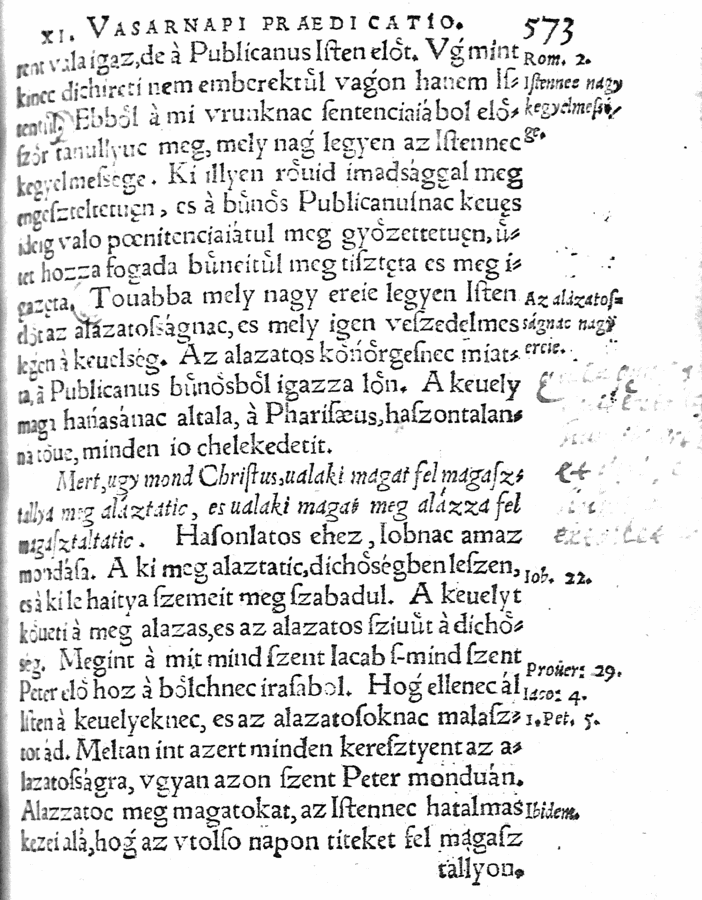 XI. VASARNAPI PRAEDICATIO. 573
vala igaz, de à Publicanus Iſten elo̊t. Vǵ mint Rom. 2.
kinec dichireti nem emberektu̇l vagon hanem Iſ⸗ Iſtennec nagy
tentu̇l. Ebbo̊l à mi vrunknac ſentenciaiábol elo̊⸗ kegyelmeſſé⸗
ſzo̊r tanullyuc meg, mely nag legyen az Iſtennec ge.
kegyelmeſsége. Ki illyen ro̊uid imadsággal meg
engeſztelteten, es à bu̇no̊s Publicanuſnac keues
ideig valo pœnitenciaiátul meg gyo̊zettetuen, u̇⸗
tet hozza fogada bu̇neitu̇l meg tiſzteta es meg i⸗
gazeta. Touabba mely nagy ereie legyen Iſten Az alázatoſ⸗
az alázatoſságnac, es mely igen veſzedelmes ságnac nagy
legen à keuelség. Az alazatos ko̊ńo̊rgeſnec miat⸗ ereie.
ta, à Publicanus bu̇no̊sbo̊l igazza lo̊n. A keuely
maga hańasánac altala, à Phariſæus, haſzontalan⸗
na to̊ue, minden io chelekedetit.
Mert, ugy mond Chriſtus, ualaki magat fel magaſz⸗
tallya meg aláztatic, es ualaki magat meg alázza fel
magaſztaltatic. Haſonlatos ehez, Iobnac amaz
mondáſa. A ki meg alaztatic, dicho̊ségben leſzen, Iob. 22.
es à ki le haitya ſzemeit meg ſzabadul. A keuelyt
ko̊ueti à meg alazas, es az alazatos ſziuu̇t à dicho̊⸗
ség. Megint à mit mind ſzent Iacab ſ-mind ſzent Prouer: 29.
Peter elo̊ hoz à bo̊lchnec iraſabol. Hoǵ ellenec ál Iaco: 4.
Iſten à keuelyeknec, es az alazatoſoknac malaſz⸗ 1. Pet. 5.
tot ád. Meltan int azert minden kereſztyent az a⸗
lazatoſságra, vgyan azon ſzent Peter monduán.
Alazzatoc meg magatokat, az Iſtennec hatalmas Ibidem.
kezei alá, hoǵ az vtolſo napon titeket fel magaſz
tallyon.